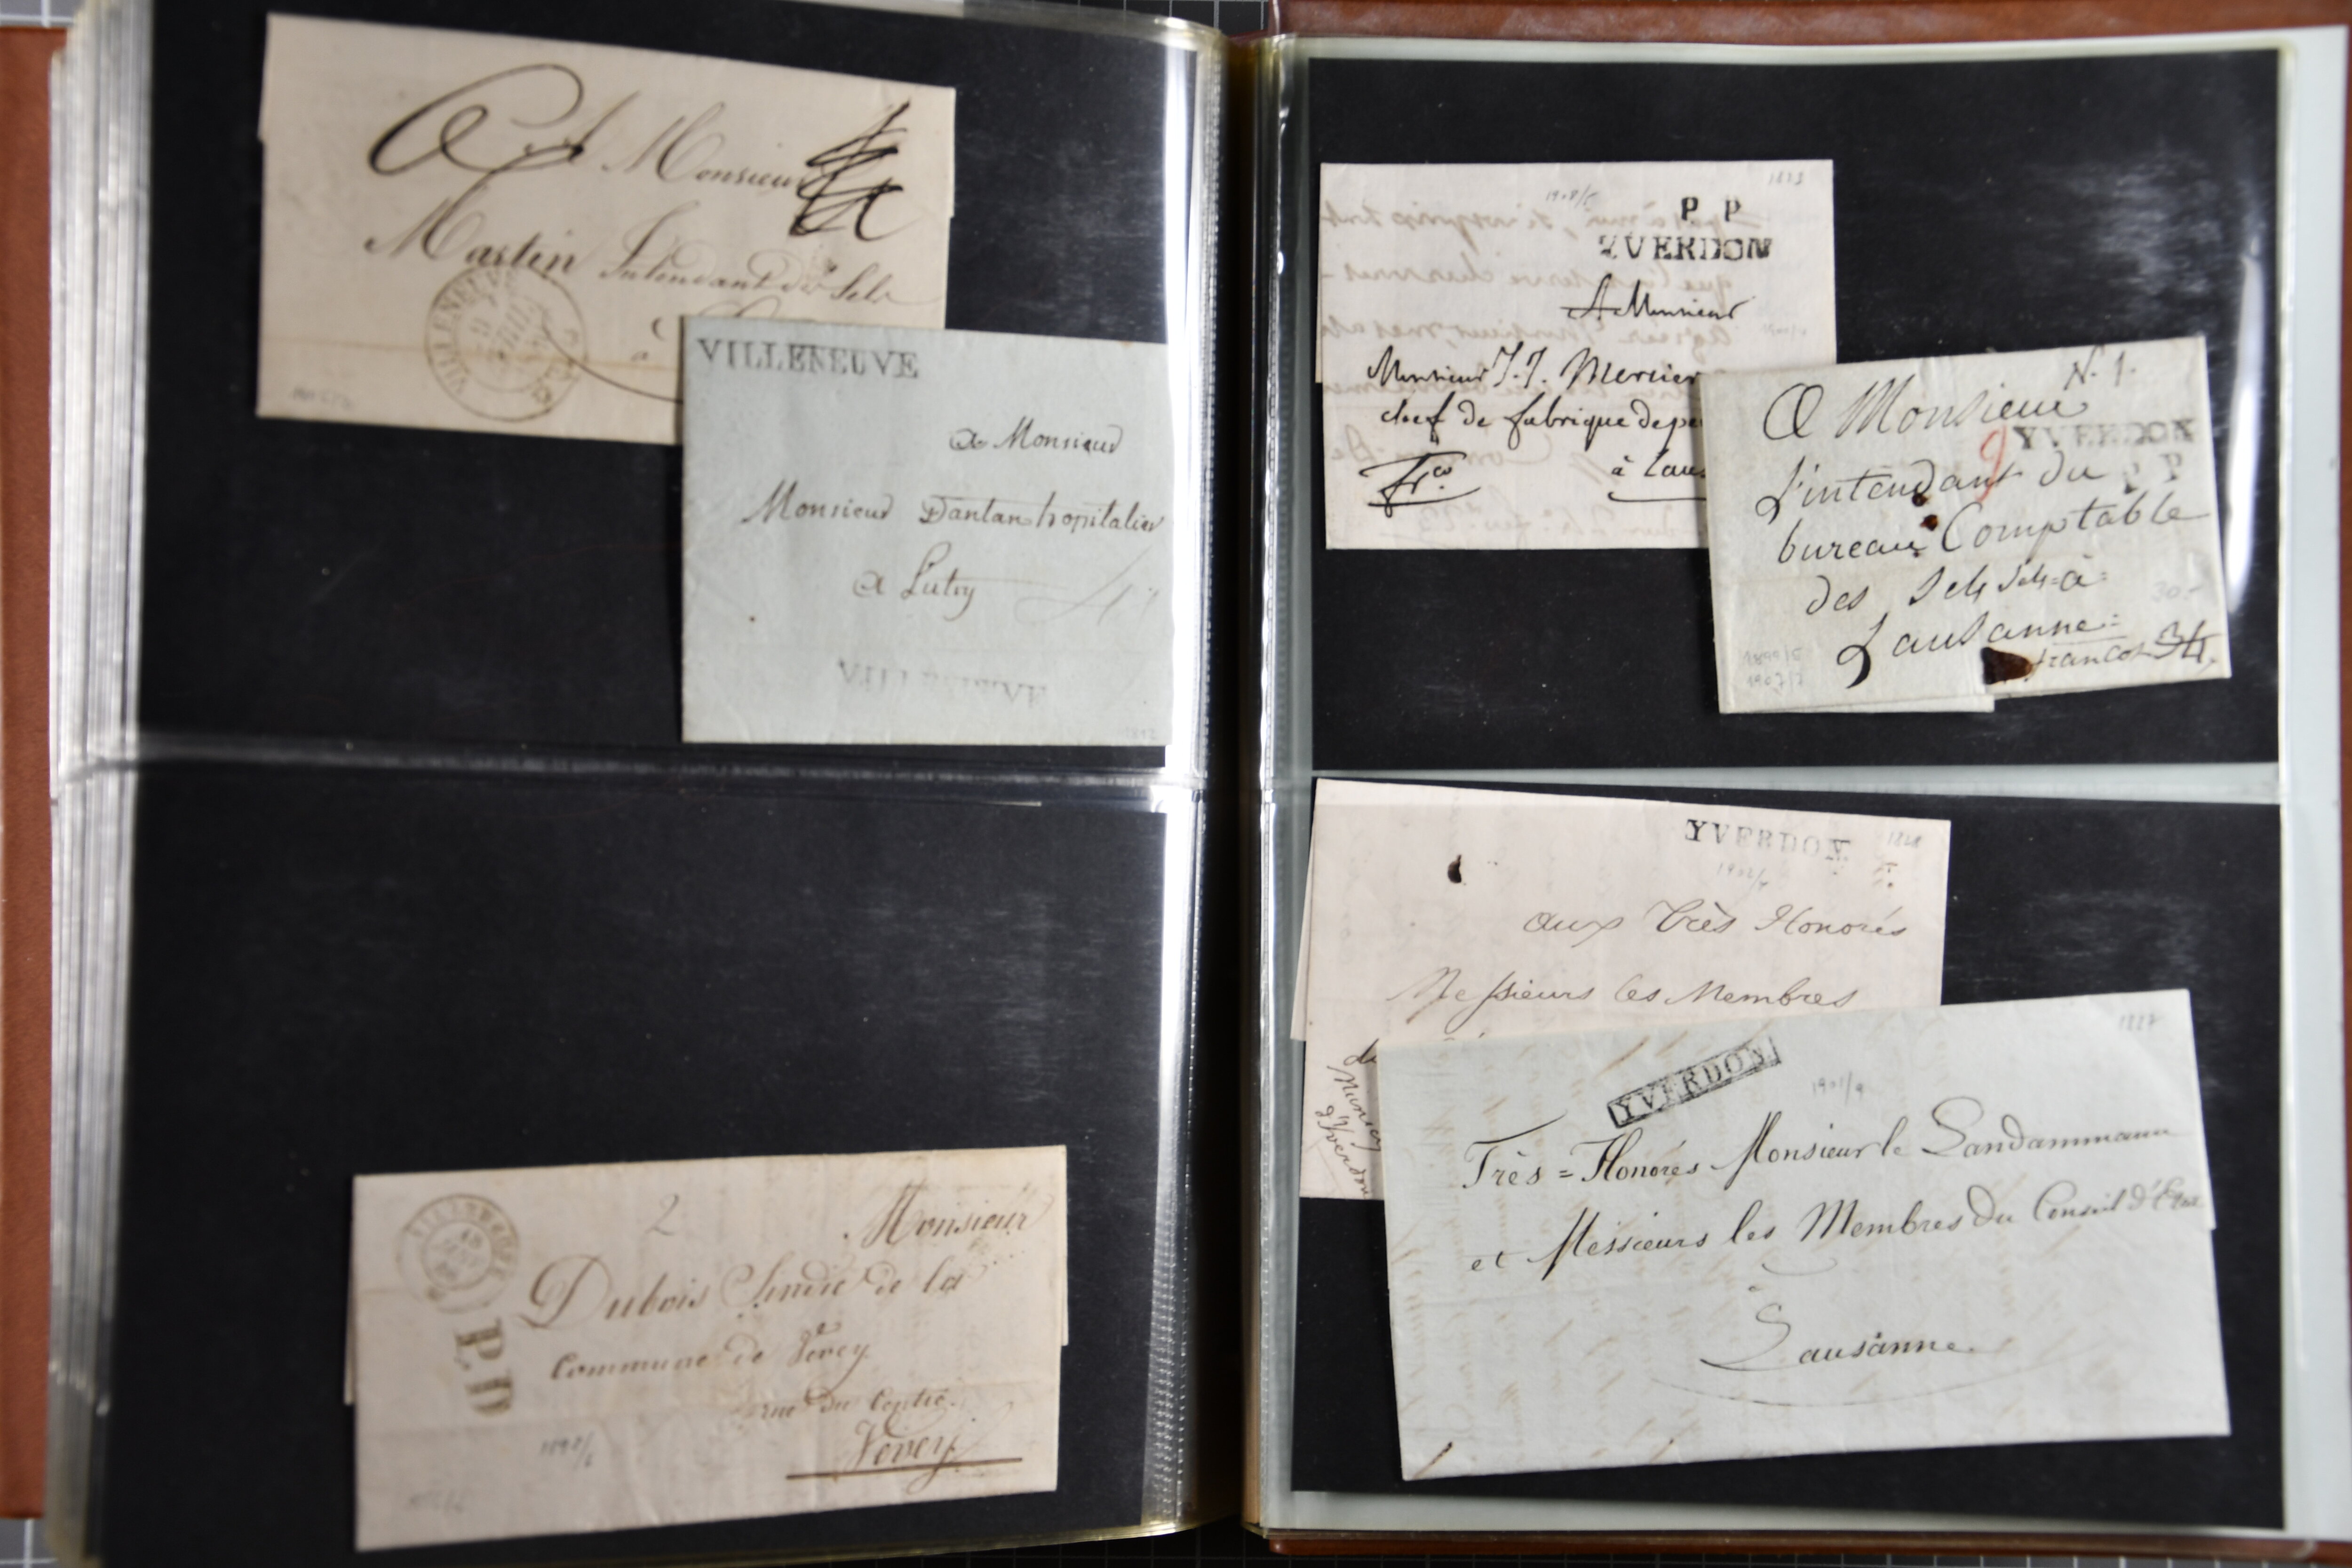 A Monsieur
Martin Intendant des Sels
a
VILLENEUVE
VILLENEUVE
a Monsieur
Monsieur Dantan hopitalier
a Lutry
VILLENEUVE
2
Monsieur
Dubois Sindic de la
Commune de Vevey
rue du Centre
Vevey
VILLENEUVE
18
P.D
1823
P P
YVERDON
A Monsieur
Monsieur J. J. Mercier
chef de fabrique de pe
Fco.
à Laus
N. 1.
A Monsieur
YVERDON
L'intendant du
P P
bureau Comptable
des Sels Sels=à=
Lausanne=
franco
30-
1907/7
YVERDON
1828
aux Très Honorés
Messieurs les Membres
de
Municip
Yverdon
YVERDON
1901/9
Très=Honorés Monsieur le Landammann
et Messieurs les Membres du Conseil d'Etat
à
Lausanne.